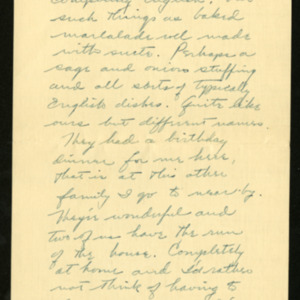 such things as baked
made
Perhaps a
sage and onion stuffing
and all sorts of typically
English dishes. Quite like
ours but different names.
They had a birthday
dinner for me here,
that is at this other
family I go to near by.
They're wonderful and
two of us have the run
of the house. Completely
at home and I'd rather
not think of having to